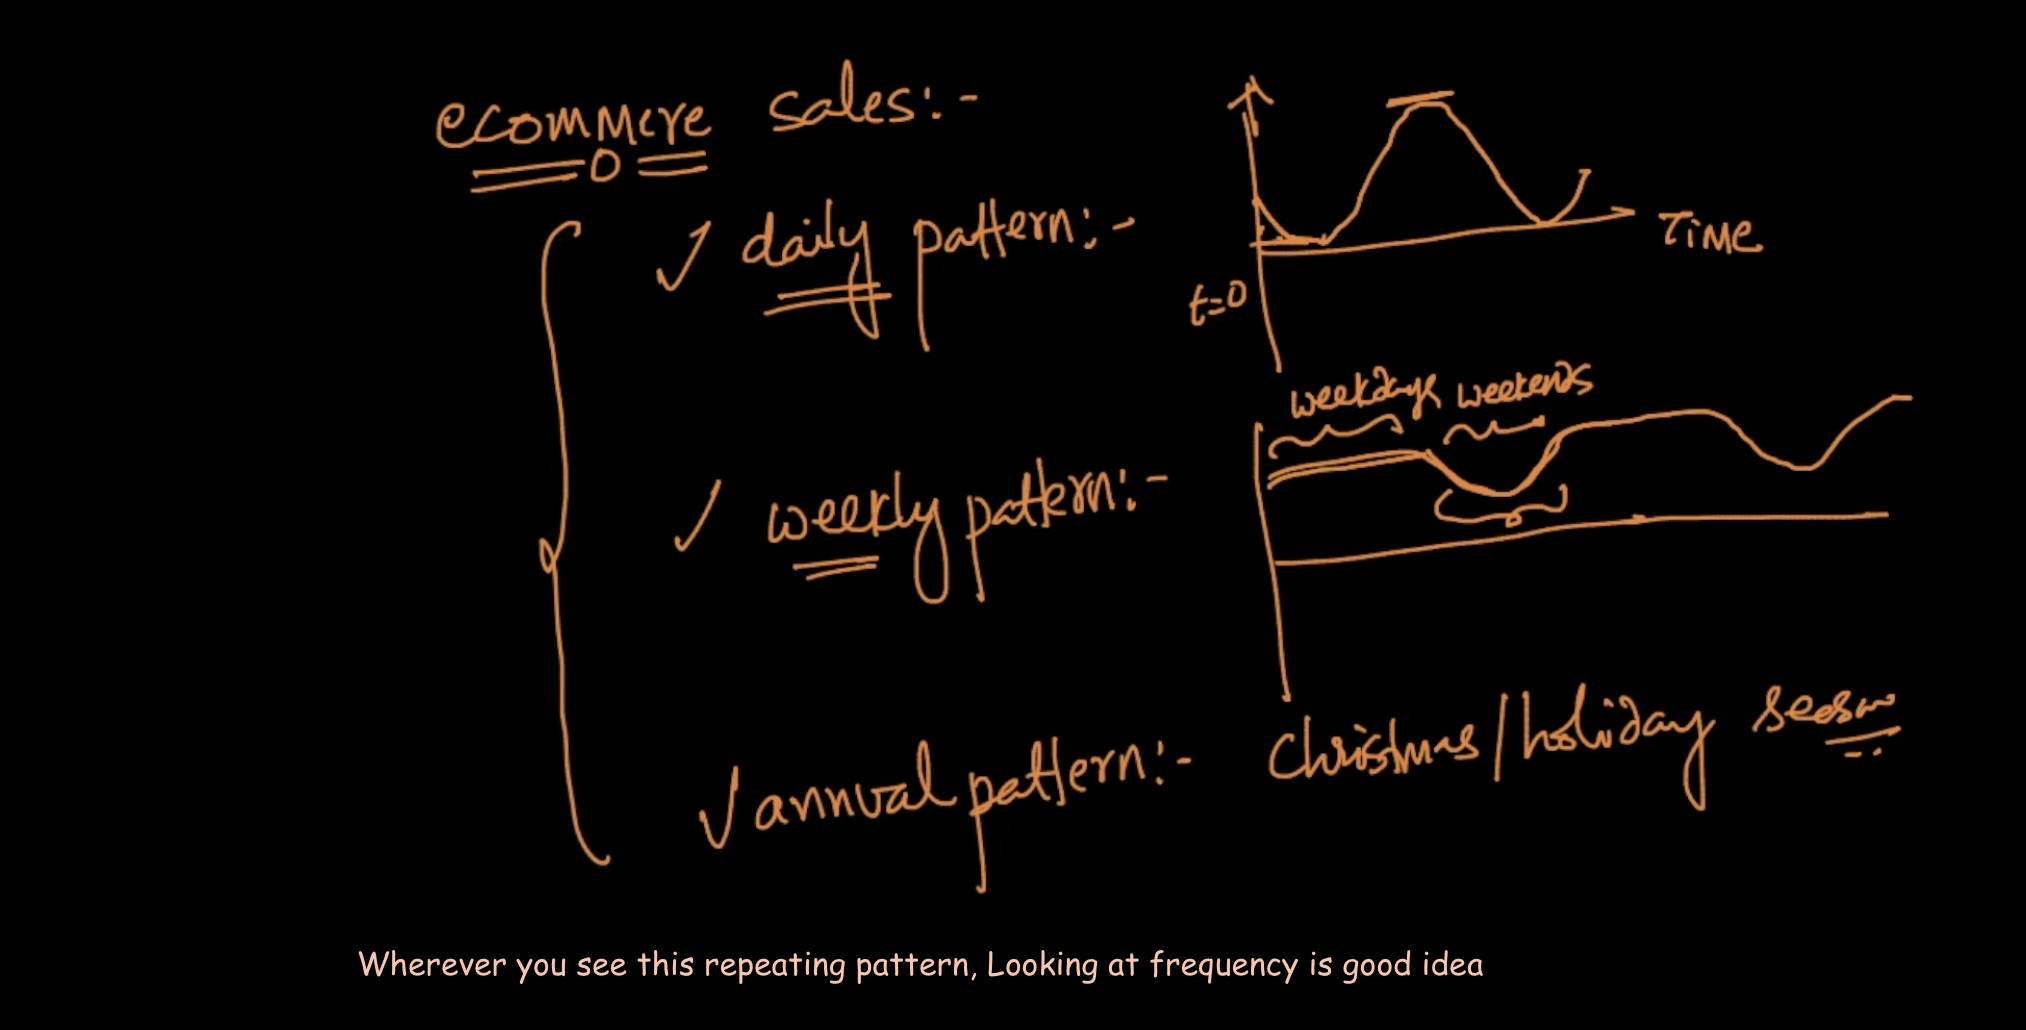 ecommere sales:-
✓ daily pattern:-
Time
t=0
weekdays weekends
✓ weekly pattern:-
✓ annual pattern:- Christmas/holiday season
Wherever you see this repeating pattern, Looking at frequency is good idea